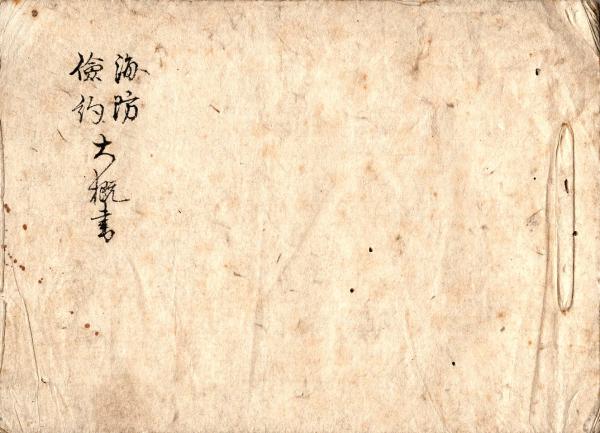 海防
儉約
大概書